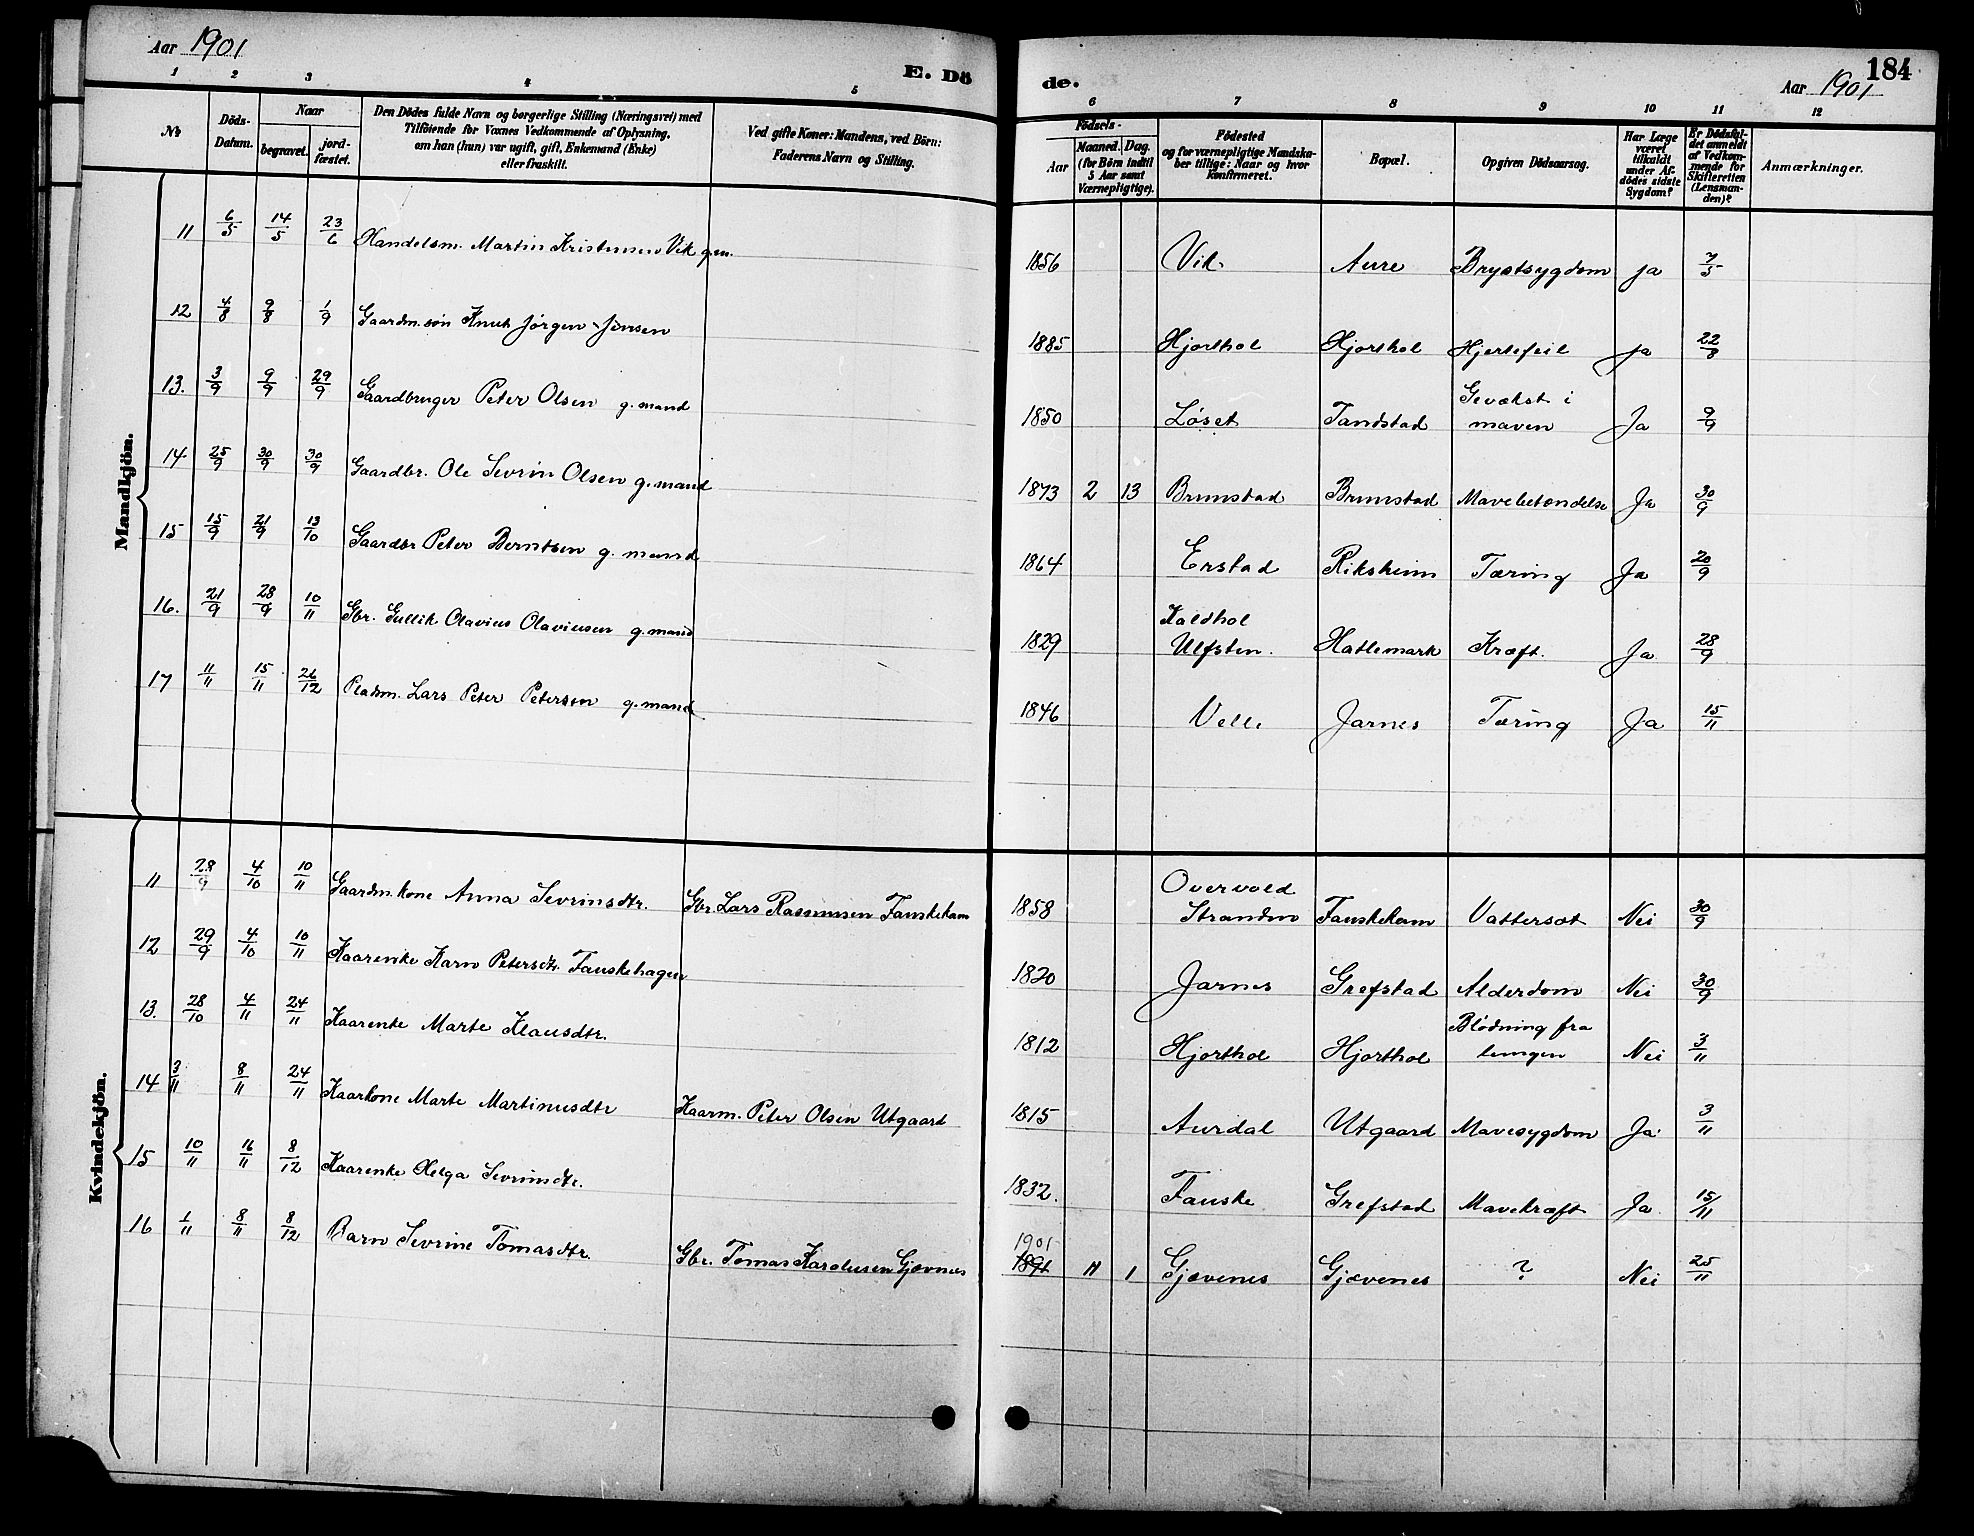 Aar 1901
E. Dö
1 2 3 4 5
No
Döds-
Datum.
Naar
begravet.
jord-
fæstet.
Den Dödes fulde Navn og borgerlige Stilling (Næringsvei) med
Tilföiende for Voxnes Vedkommende af Oplysning,
om han (hun) var ugift, gift, Enkemand (Enke)
eller fraskilt.
Ved gifte Koner: Mandens, ved Börn:
Faderens Navn og Stilling.
Mandkjön.
11 6/5 14/5 23/6 Handelsm. Martin Kristensen Vik g.m.
12 4/8 9/8 1/9 Gaardm.søn Knut Jørgen Jensen
13. 3/9 9/9 29/9 Gaardbruger Peter Olsen g. mand
14 25/9 30/9 30/9 Gaardbr. Ole Sevrin Olsen g. mand
15 15/9 21/9 13/10 Gaardbr Peter Berntsen g. mand
16. 21/9 28/9 10/11 Gbr. Gullik Olavius Olaviusen g. mand
17 11/11 15/11 26/12 Pladm. Lars Peter Petersen g. mand
Kvindekjön.
11 28/9 4/10 10/11 Gaardm.kone Anna Sevrinsdtr. Gbr. Lars Rasmusen Fauskekam
12 29/9 4/10 10/11 Kaarenke Karn Petersdtr. Fauskehagen
13. 28/10 4/11 24/11 Kaarenke Marte Klausdtr.
14 3/11 8/11 24/11 Kaarkone Marte Martinusdtr Kaarm. Peter Olsen Utgaard
15 10/11 16/11 8/12 Kaarenke Helga Sevrinsdtr.
16 1/11 8/11 8/12 Barn Sevrine Tomasdtr. Gbr. Tomas Karolusen Gjævnes
184
de.
Aar 1901
6 7 8 9 10 11 12
Födsels-
Aar
Maaned. Dag.
(for Börn indtil
5 Aar samt
Værnepligtige).
Födested
og for værnepligtige Mandska-
ber tillige: Naar og hvor
konfirmeret.
Bopæl.
Opgiven Dödsaarsag.
Har Læge
været
tilkaldt
under Af-
dödes sidste
Sygdom?
Er Dödsfal-
det anmeldt
af Vedkom-
mende for
Skifteretten
(Lensman-
den)?
Anmærkninger.
1856 Vik Aure Brystsygdom ja 7/5
1885 Hjorthol Hjorthol Hjertefeil ja 22/8
Gevækst i
1850 Løset Tandstad maven Ja 9/9
1873 2 13 Brunstad Brunstad Mavebetændelse Ja 30/9
1864 Erstad Riksheim Tæring Ja 20/9
Kaldhol
1829 Ulfsten. Hatlemark Kræft. Ja 28/9
1846 Velle Jarnes Tæring Ja 15/11
Overvold
1858 Strandmo Fauskekam Vattersot Nei 30/9
1820 Jarnes Grefstad Alderdom Nei 30/9
Blødning fra
1812 Hjorthol Hjorthol lungen Nei 3/11
1815 Aurdal Utgaard Mavesygdom Ja 3/11
1832. Fauske Grefstad Mavekræft Ja 15/11
1901
1891 11 1 Gjævenes Gjævenes ? Nei 25/11